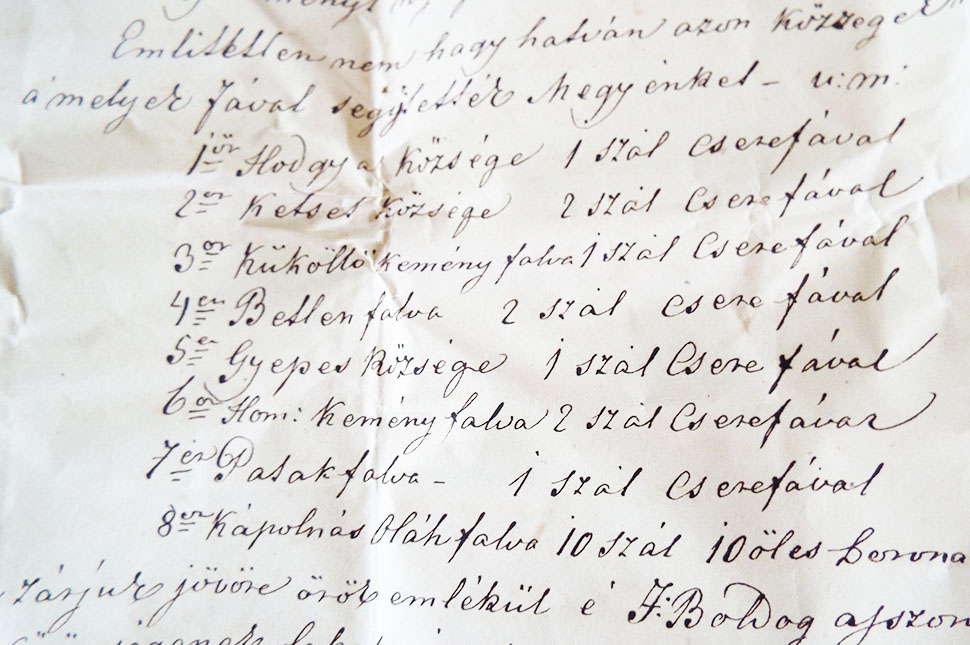 Emlitetlen nem hagyhatván azon Közsege
a melyek fával segijtették Megyénket – u: m:
1ör Hodgya Községe 1 szál Cserefával
2or Ketset Községe 2 szál Cserefával
3or Küküllő kemény falva 1 szál Cserefával
4er Betlenfalva 2 szál csere fával
5er Gyepes Községe 1 szál Csere fával
6or Hom: Keményfalva 2 szál Cserefával
7er Patakfalva – 1 szál cserefával
8er Kápolnás Oláhfalva 10 szál 10 öles borona
zárjuk jövöre örök emlékül é F: Boldog aszszon